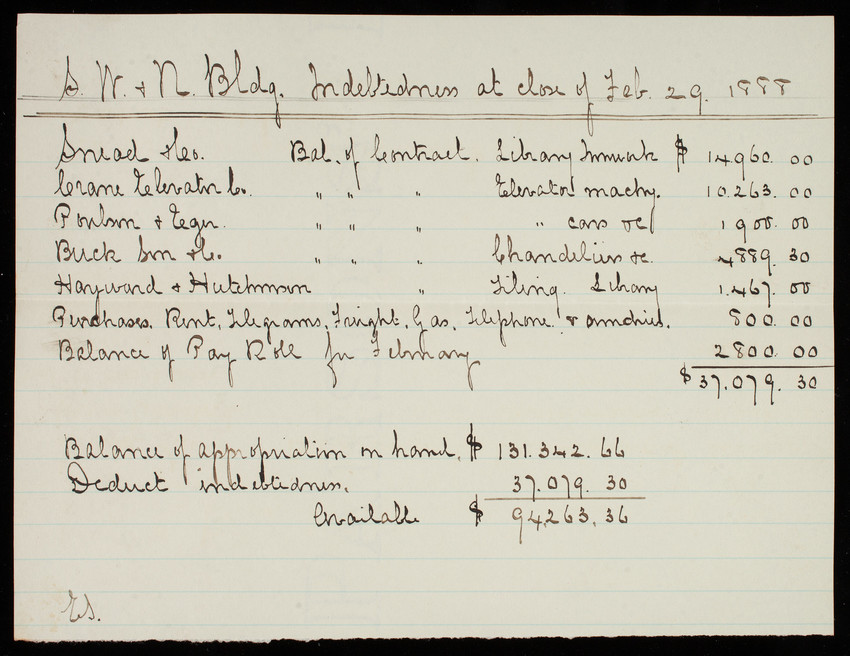 S. W. & N. Bldg. Indebtedness at close of Feb. 29. 1888
Snead & Co. Bal. of Contract. Library Ironwork $ 14.960. 00
Crane Elevator Co. " " " Elevator machy. 10.263. 00
Poulson & Eger. " " " " cars &c 1900. 00
Buck Son & Co. " " " Chandeliers &c. 4889. 30
Hayward & Hutchinson " Tiling. Library 1.467. 00
Purchases. Rent, Telegrams, Freight, Gas, Telephone & sundries. 800. 00
Balance of Pay Roll for February 2800. 00
$ 37.079. 30
Balance of appropriation on hand. $ 131.342. 66
Deduct indebtedness. 37.079. 30
Available $ 94,263. 36